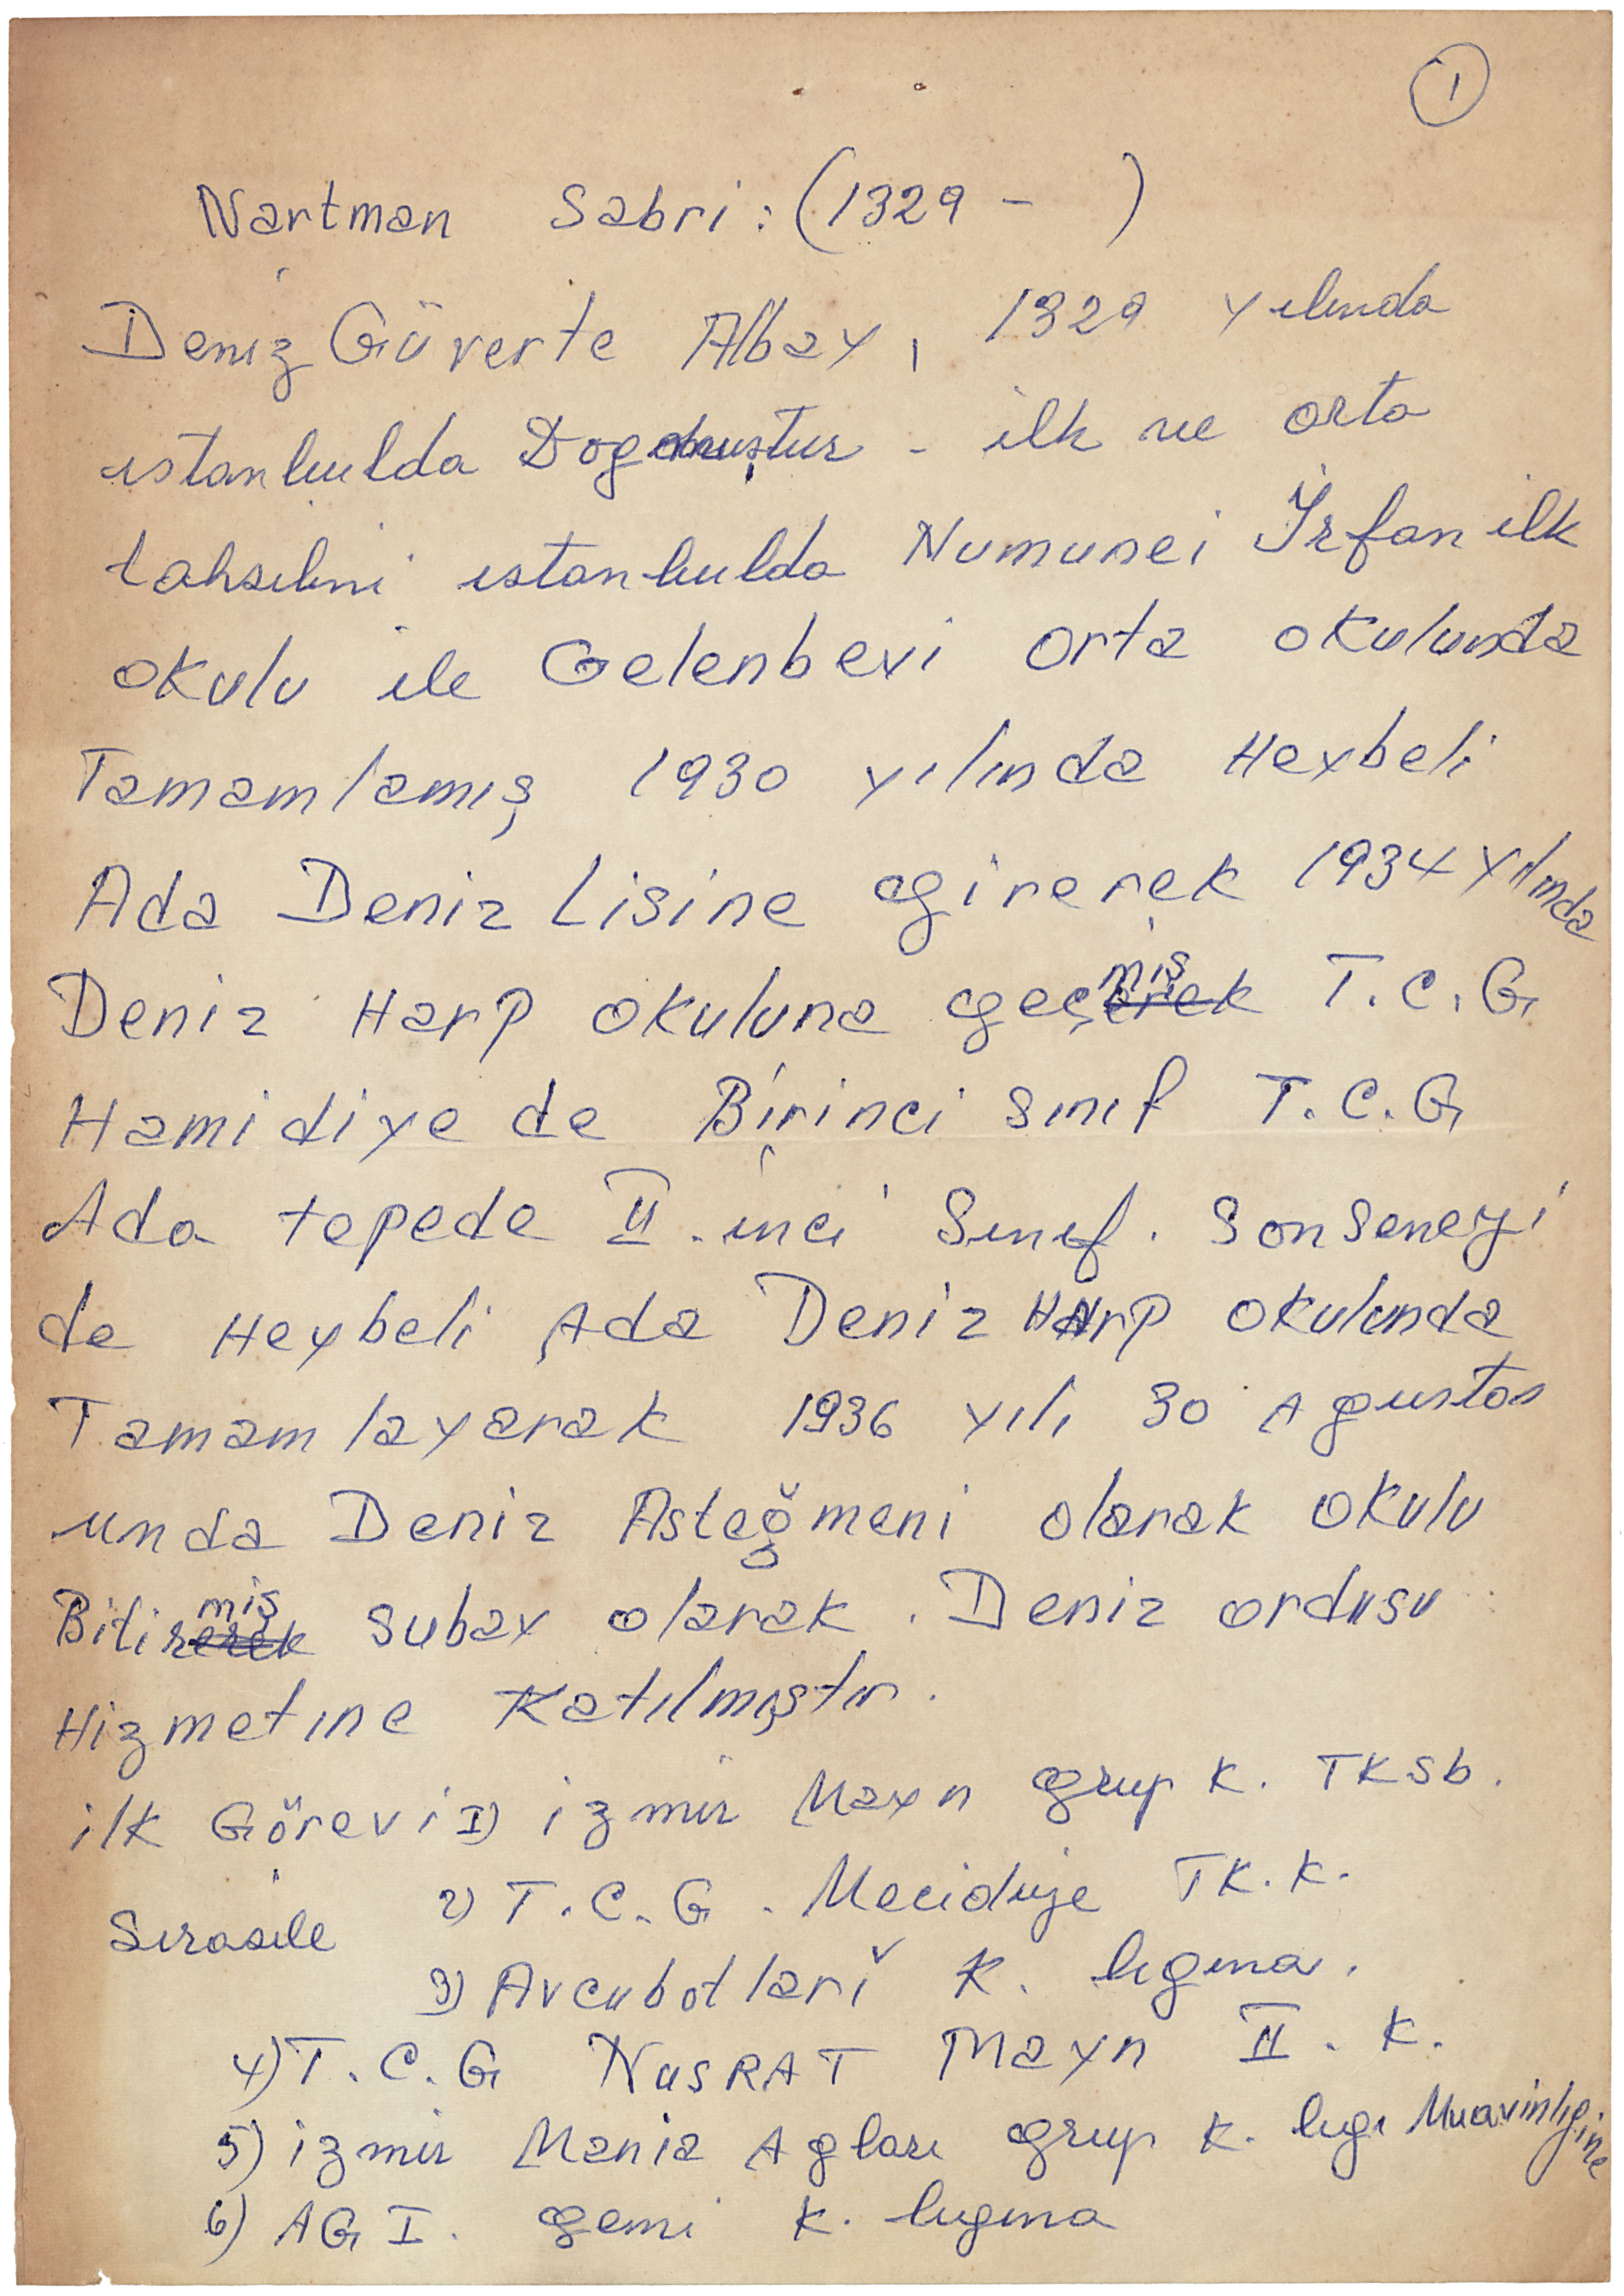 1
Nartman Sabri : (1329 - )
Deniz Güverte Albay, 1329 yılında
istanbulda Dogmuştur - ilk ve orta
tahsilini istanbulda Numunei İrfan ilk
okulu ile Gelenbevi orta okulunda
Tamamlamış 1930 yılında Heybeli
Ada Deniz Lisine girerek 1934 yılında
Deniz Harp okuluna geçmiş T.C.G
Hamidiye de Birinci sınıf T.C.G
Ada tepede II. inci Sınıf. Son Seneyi
de Heybeli Ada Deniz Harp okulunda
Tamamlayarak 1936 yılı 30 Agustos
unda Deniz Asteğmeni olarak okulu
Bitirmiş subay olarak. Deniz ordusu
Hizmetine Katılmıştır.
ilk Görevi I) izmir Mayn grup K. TKsb.
Sırasile 2) T.C.G. Mecidiye TK.K.
3) Avcubotları K. lıgına.
4) T.C.G NusRAT Mayn II. K.
5) izmir Mania Agları grup K. lıgı Muavinligine
6) AG I. gemi K. lıgına